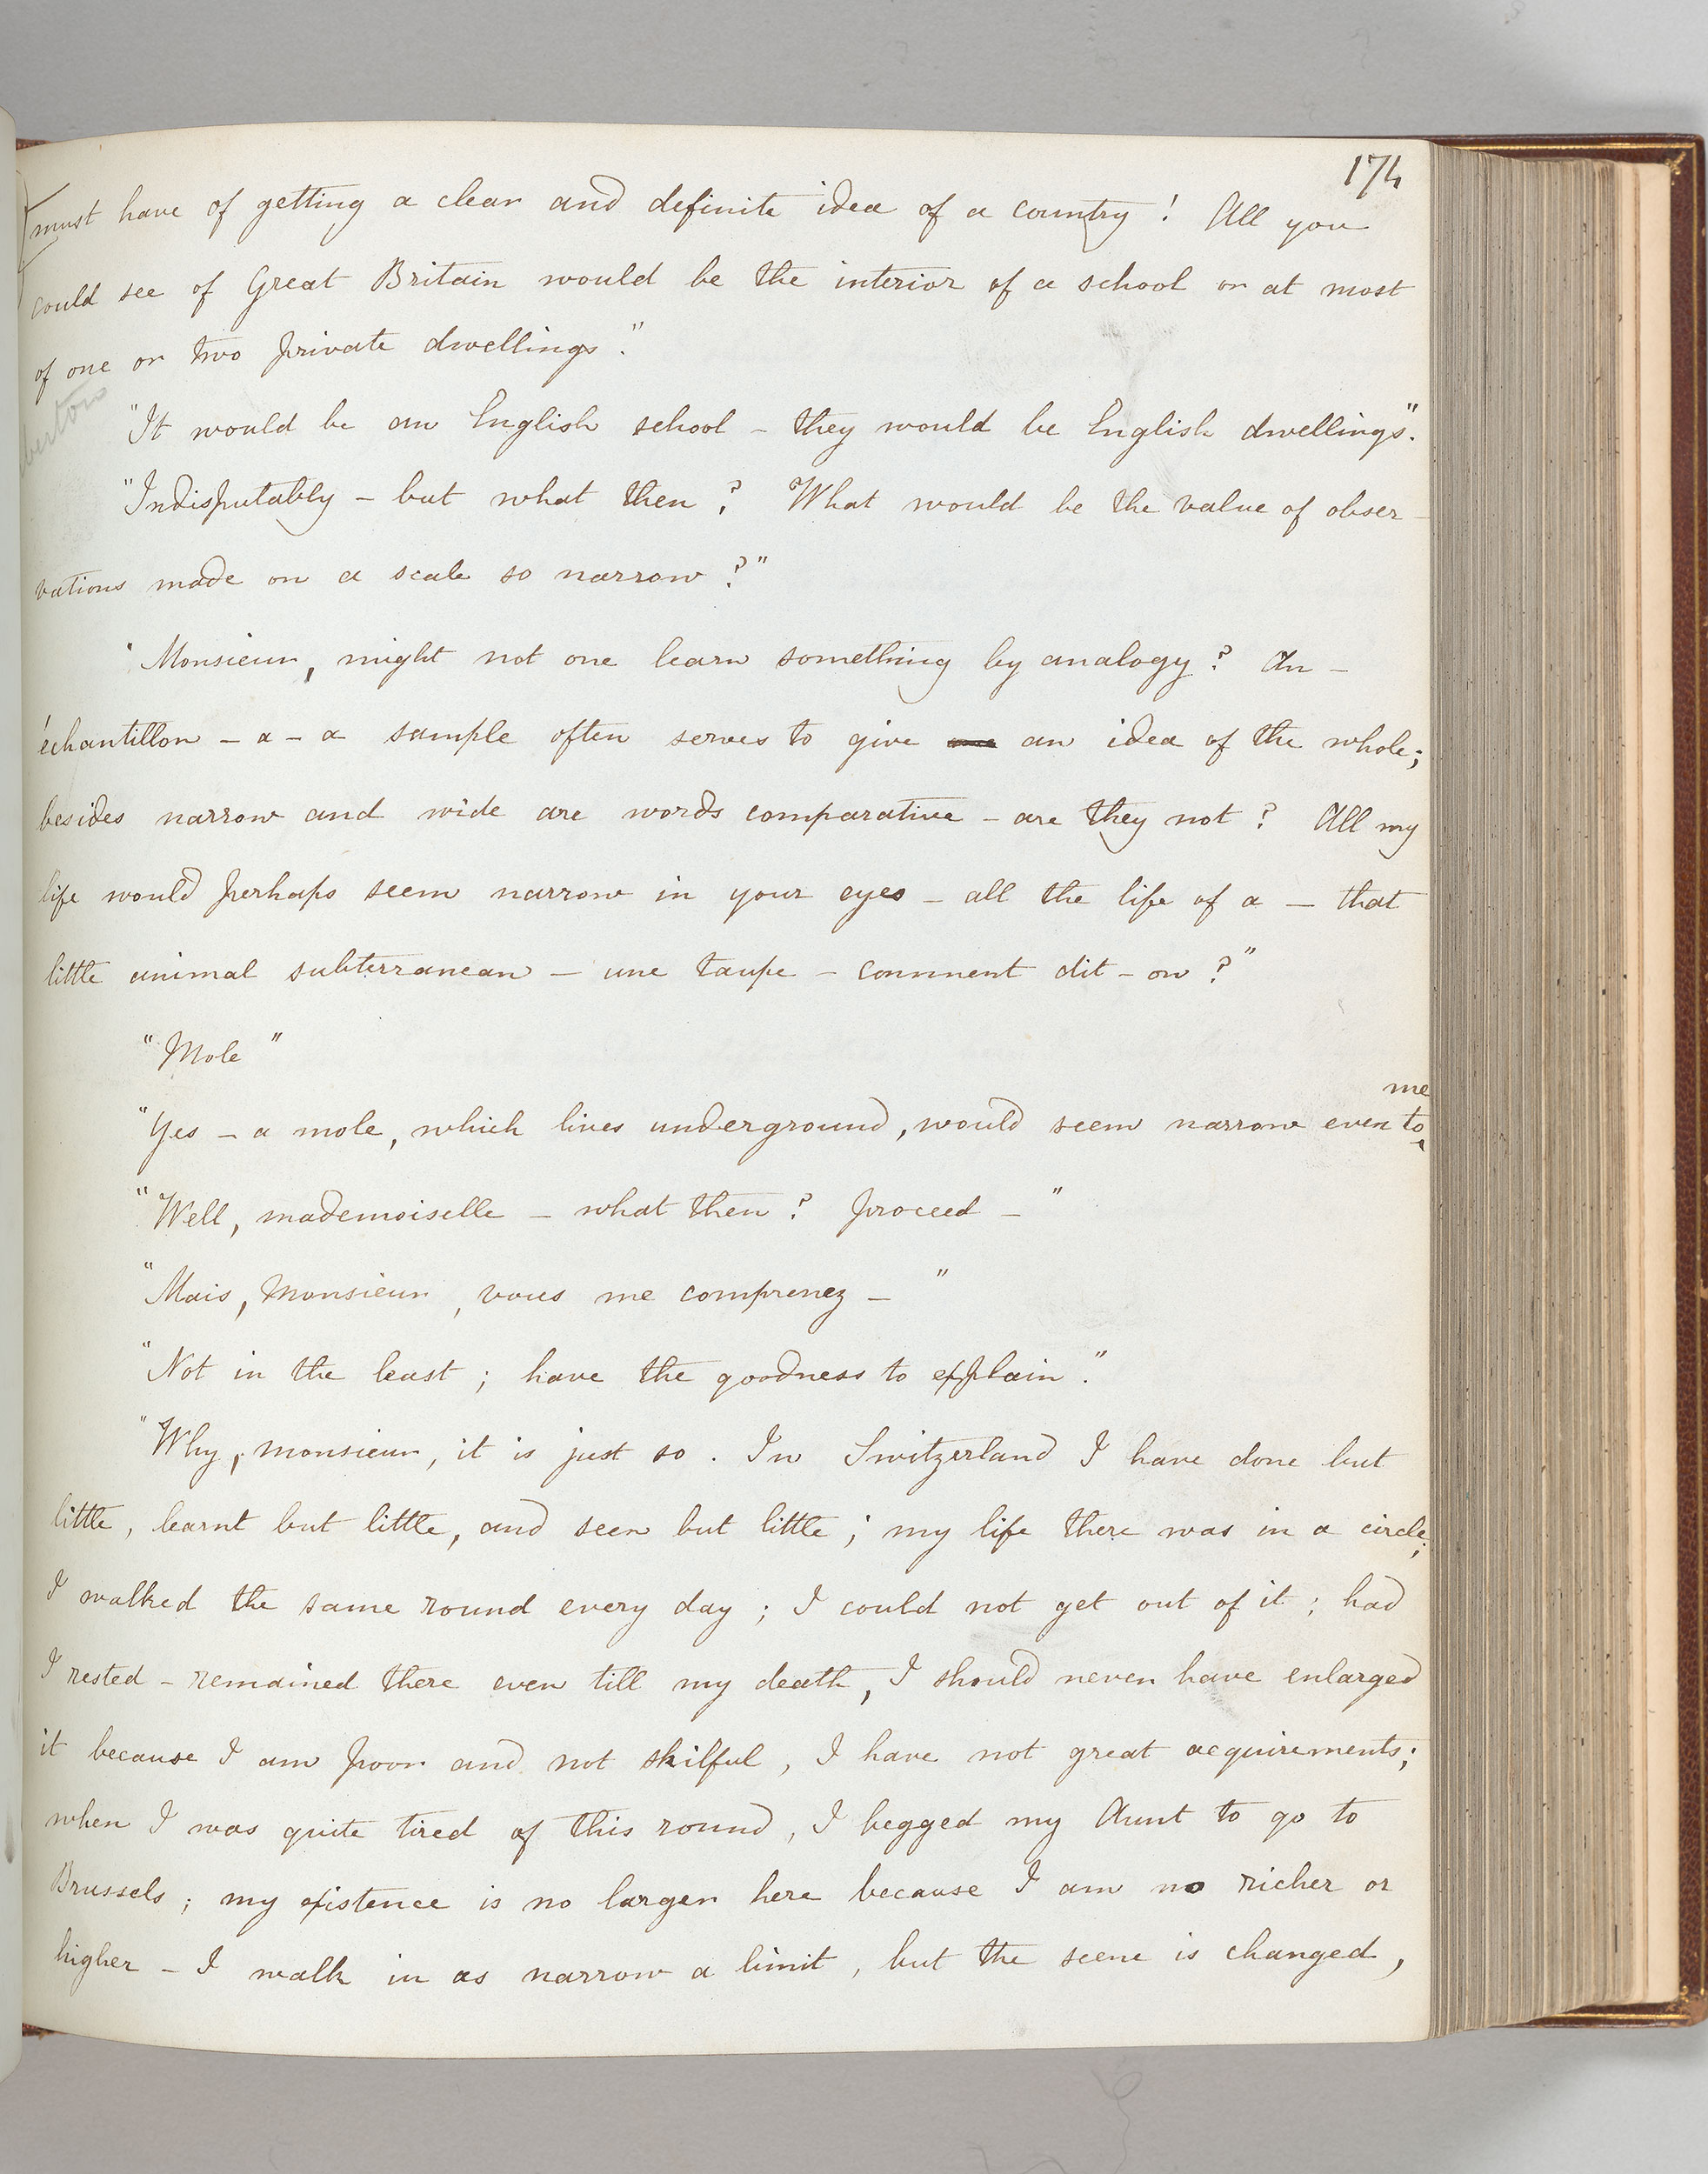 174
must have of getting a clear and definite idea of a country! All you
could see of Great Britain would be the interior of a school or at most
of one or two private dwellings."
"It would be an English school – they would be English dwellings".
"Indisputably – but what then? What would be the value of obser-
vations made on a scale so narrow?"
"Monsieur, might not one learn something by analogy? An –
échantillon – a – a sample often serves to give an idea of the whole;
besides narrow and wide are words comparative – are they not? All my
life would perhaps seem narrow in your eyes – all the life of a – that
little animal subterranean – une taupe – comment dit-on?"
"Mole"
me
"Yes – a mole, which lives underground, would seem narrow even to
"Well, mademoiselle – what then? Proceed –"
"Mais, Monsieur, vous me comprenez –"
"Not in the least; have the goodness to explain."
"Why, monsieur, it is just so. In Switzerland I have done but
little, learnt but little, and seen but little; my life there was in a circle;
I walked the same round every day; I could not get out of it; had
I rested – remained there even till my death, I should never have enlarged
it because I am poor and not skilful, I have not great acquirements;
when I was quite tired of this round, I begged my Aunt to go to
Brussels; my existence is no larger here because I am no richer or
higher – I walk in as narrow a limit, but the scene is changed,